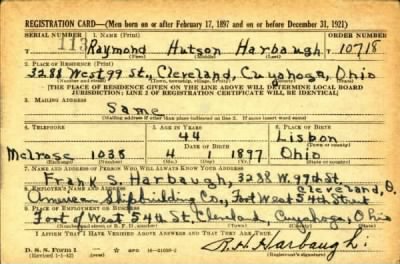 REGISTRATION CARD—(Men born on or after February 17, 1897 and on or before December 31, 1921)
SERIAL NUMBER 1. NAME (Print) ORDER NUMBER
T 113 Raymond Hutson Harbaugh T 10718
2. PLACE OF RESIDENCE (Print)
3288 West 99 St., Cleveland, Cuyahoga, Ohio
(Number and street) (Town, township, village, or city) (County) (State)
[THE PLACE OF RESIDENCE GIVEN ON THE LINE ABOVE WILL DETERMINE LOCAL BOARD
JURISDICTION; LINE 2 OF REGISTRATION CERTIFICATE WILL BE IDENTICAL]
3. MAILING ADDRESS
Same
(Mailing address if other than place indicated on line 2. If same insert word same)
4. TELEPHONE 5. AGE IN YEARS 6. PLACE OF BIRTH
44 Lisbon
DATE OF BIRTH (Town or county)
Melrose 1038 4 1897 Ohio
(Exchange) (Number) (Mo.) (Day) (Yr.) (State or country)
7. NAME AND ADDRESS OF PERSON WHO WILL ALWAYS KNOW YOUR ADDRESS
Frank S. Harbaugh, 3238 W. 97th St. Cleveland, O.
8. EMPLOYER'S NAME AND ADDRESS
American Shipbuilding Co., Foot West 54th Street
9. PLACE OF EMPLOYMENT OR BUSINESS
Foot of West 54th St. Cleveland, Cuyahoga, Ohio
(Number and street or R. F. D. number) (Town) (County) (State)
I AFFIRM THAT I HAVE VERIFIED ABOVE ANSWERS AND THAT THEY ARE TRUE.
D. S. S. Form 1 GPO 16—21630-2 R. H. Harbaugh
(Revised 1-1-42) (Registrant's signature)